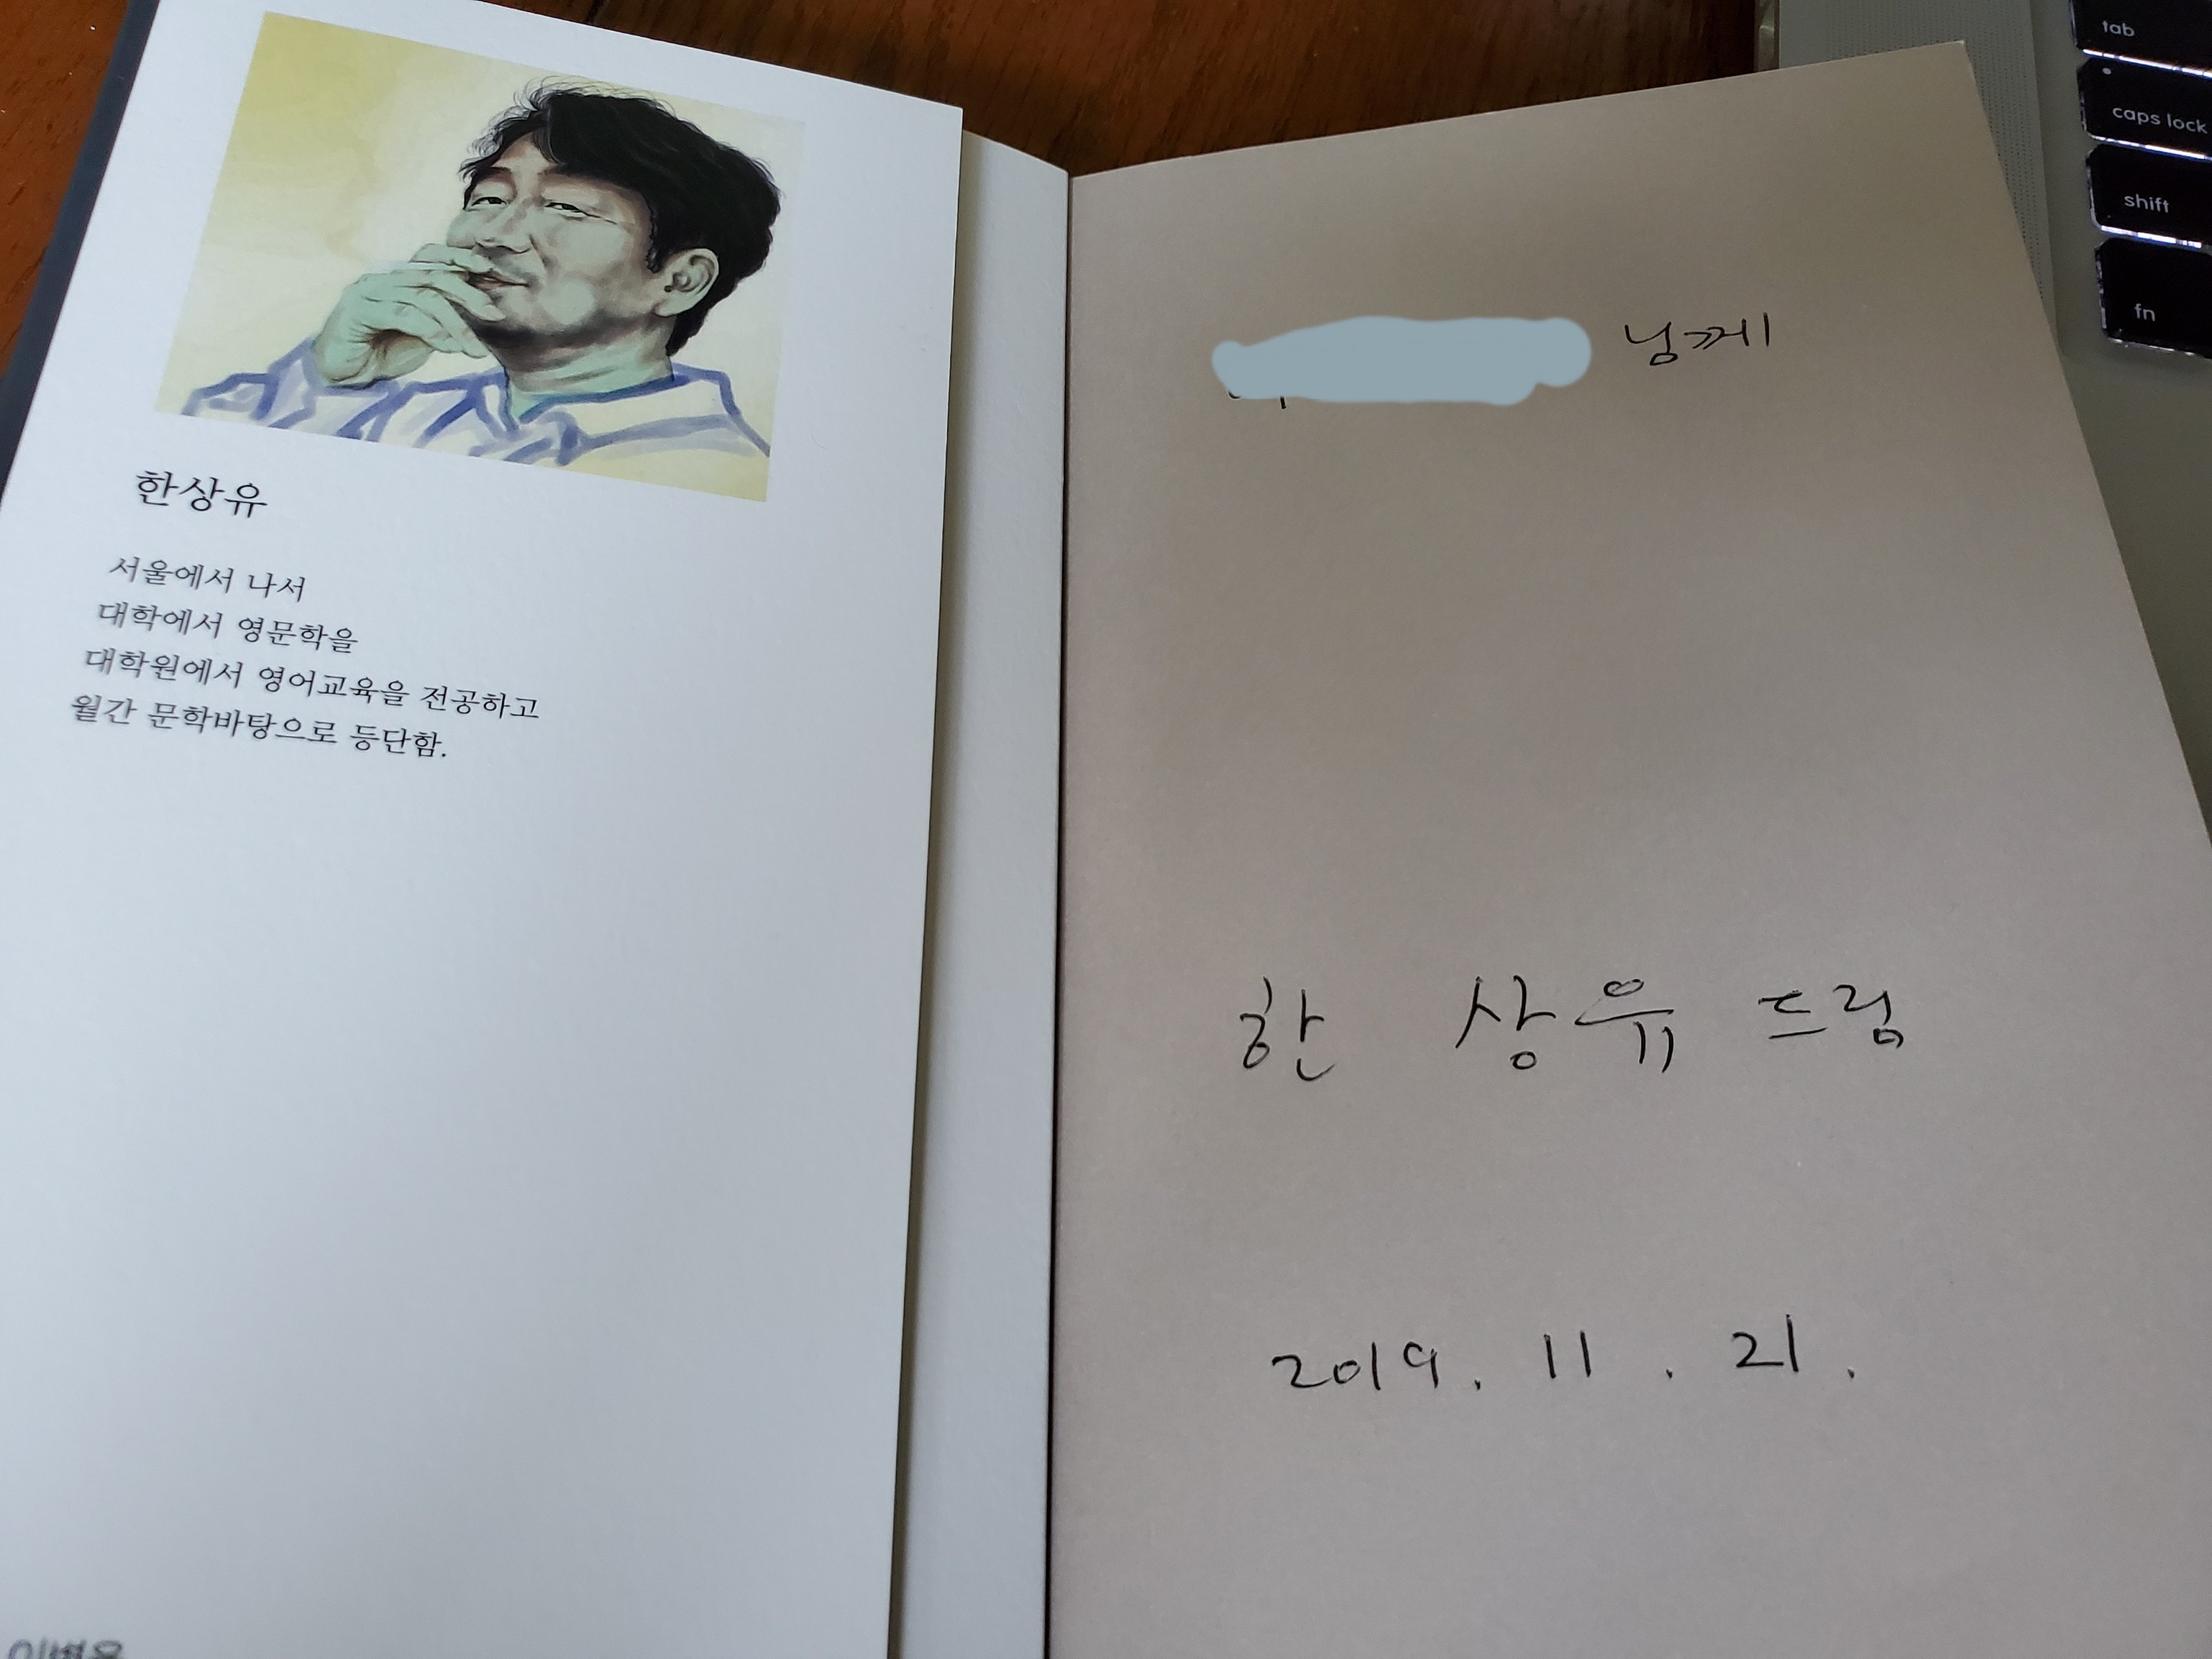 한상유
서울에서 나서
대학에서 영문학을
대학원에서 영어교육을 전공하고
월간 문학바탕으로 등단함.
님께
한 상유 드림
2019. 11. 21.
tab
caps lock
shift
fn